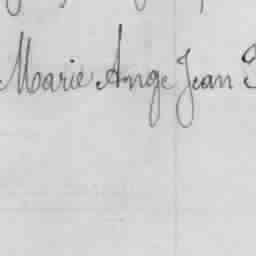 Marie Ange Jean